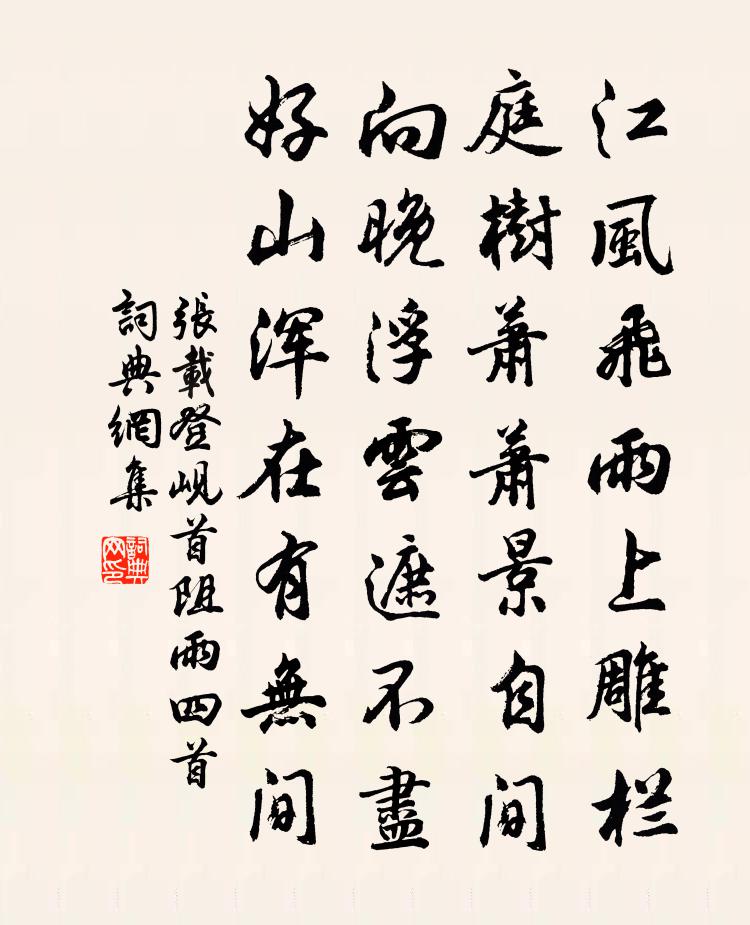 江風飛雨上雕栏
庭樹蕭蕭景自间
向晚浮雲遮不盡
好山浑在有無间
張載登峴首阻雨四首
詞典網集
詞典网印